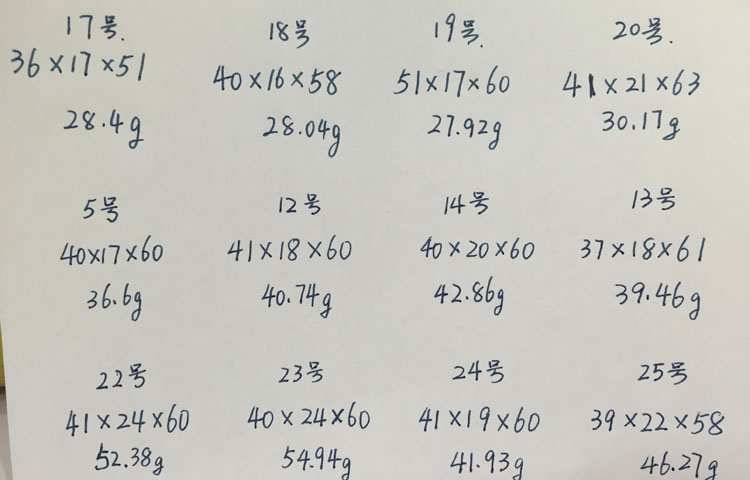 17号. 18号 19号. 20号.
36×17×51 40×16×58 51×17×60 41×21×63
28.4g 28.04g 27.92g 30.17g
5号 12号 14号 13号
40×17×60 41×18×60 40×20×60 37×18×61
36.6g 40.74g 42.86g 39.46g
22号 23号 24号 25号
41×24×60 40×24×60 41×19×60 39×22×58
52.38g 54.94g 41.93g 46.27g